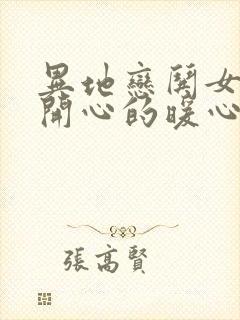 異地戀鬨女
開心的暖心
張高賢